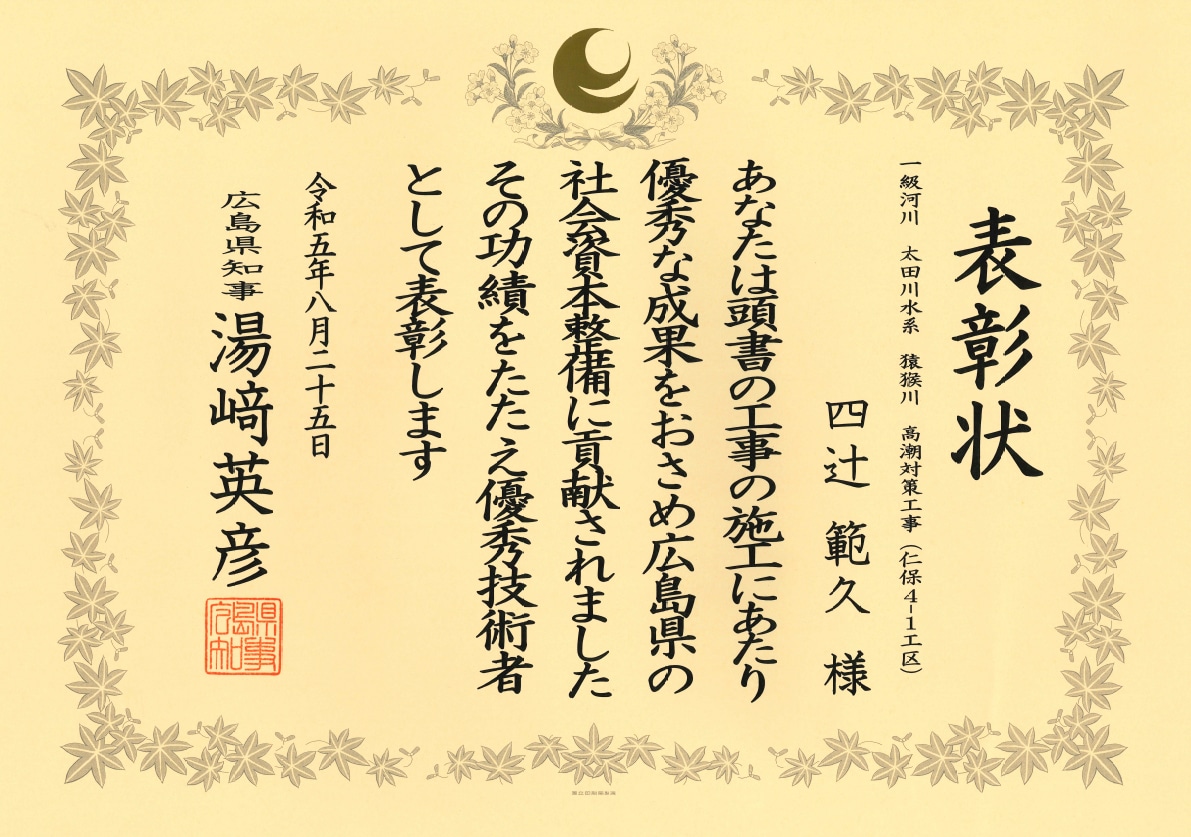 表彰状
一級河川 太田川水系 猿猴川 高潮対策工事(仁保4-1工区)
四辻 範久 様
あなたは頭書の工事の施工にあたり
優秀な成果をおさめ広島県の
社会資本整備に貢献されました
その功績をたたえ優秀技術者
として表彰します
令和五年八月二十五日
広島県知事 湯﨑英彦